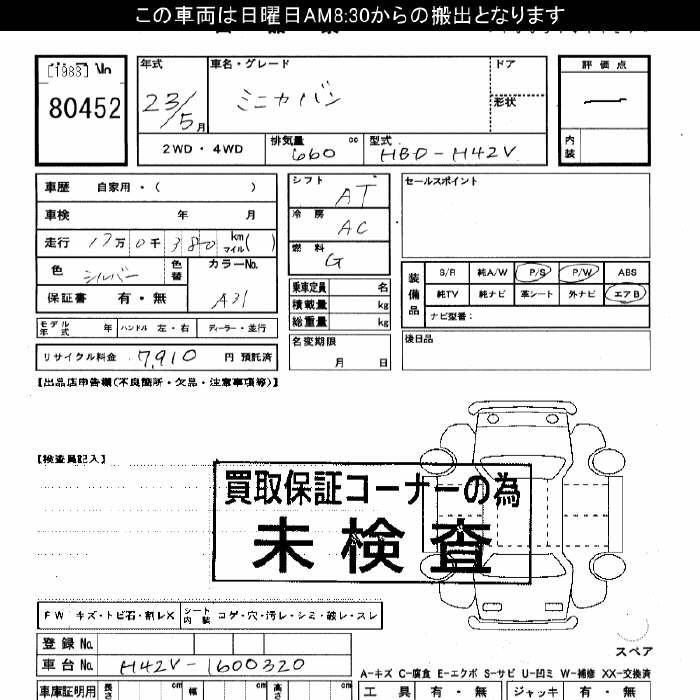 この車両は日曜日AM8:30からの搬出となります
[1983]
80452
年式 車名・グレード ドア 評価点
23/5月 ミニカバン 形状 ―
2WD・4WD 排気量 660 cc 型式 HBD-H42V 内装
車歴 自家用・( )
車検 年 月
走行 17万0千380 km マイル( )
色 シルバー 色替 カラーNo. A31
保証書 有・無
モデル年式 年 ハンドル 左・右 ディーラー・並行
リサイクル料金 7,910 円 預託済
シフト AT
冷房 AC
燃料 G
乗車定員 名
積載量 kg
総重量 kg
名変期限
月 日
セールスポイント
装備品 S/R 純A/W P/S P/W ABS
純TV 純ナビ 革シート 外ナビ エアB
ナビ型番:
後日品
【出品店申告欄(不良箇所・欠品・注意事項等)】
【検査員記入】
買取保証コーナーの為
未検査
FW キズ・トビ石・割レX シート内装 コゲ・穴・汚レ・シミ・破レ・スレ
登録No.
車台No. H42V-1600320
スペア
A-キズ C-腐食 E-エクボ S-サビ U-凹ミ W-補修 XX-交換済
車庫証明用 長さ cm 幅 cm 高さ cm
工具 有・無 ジャッキ 有・無